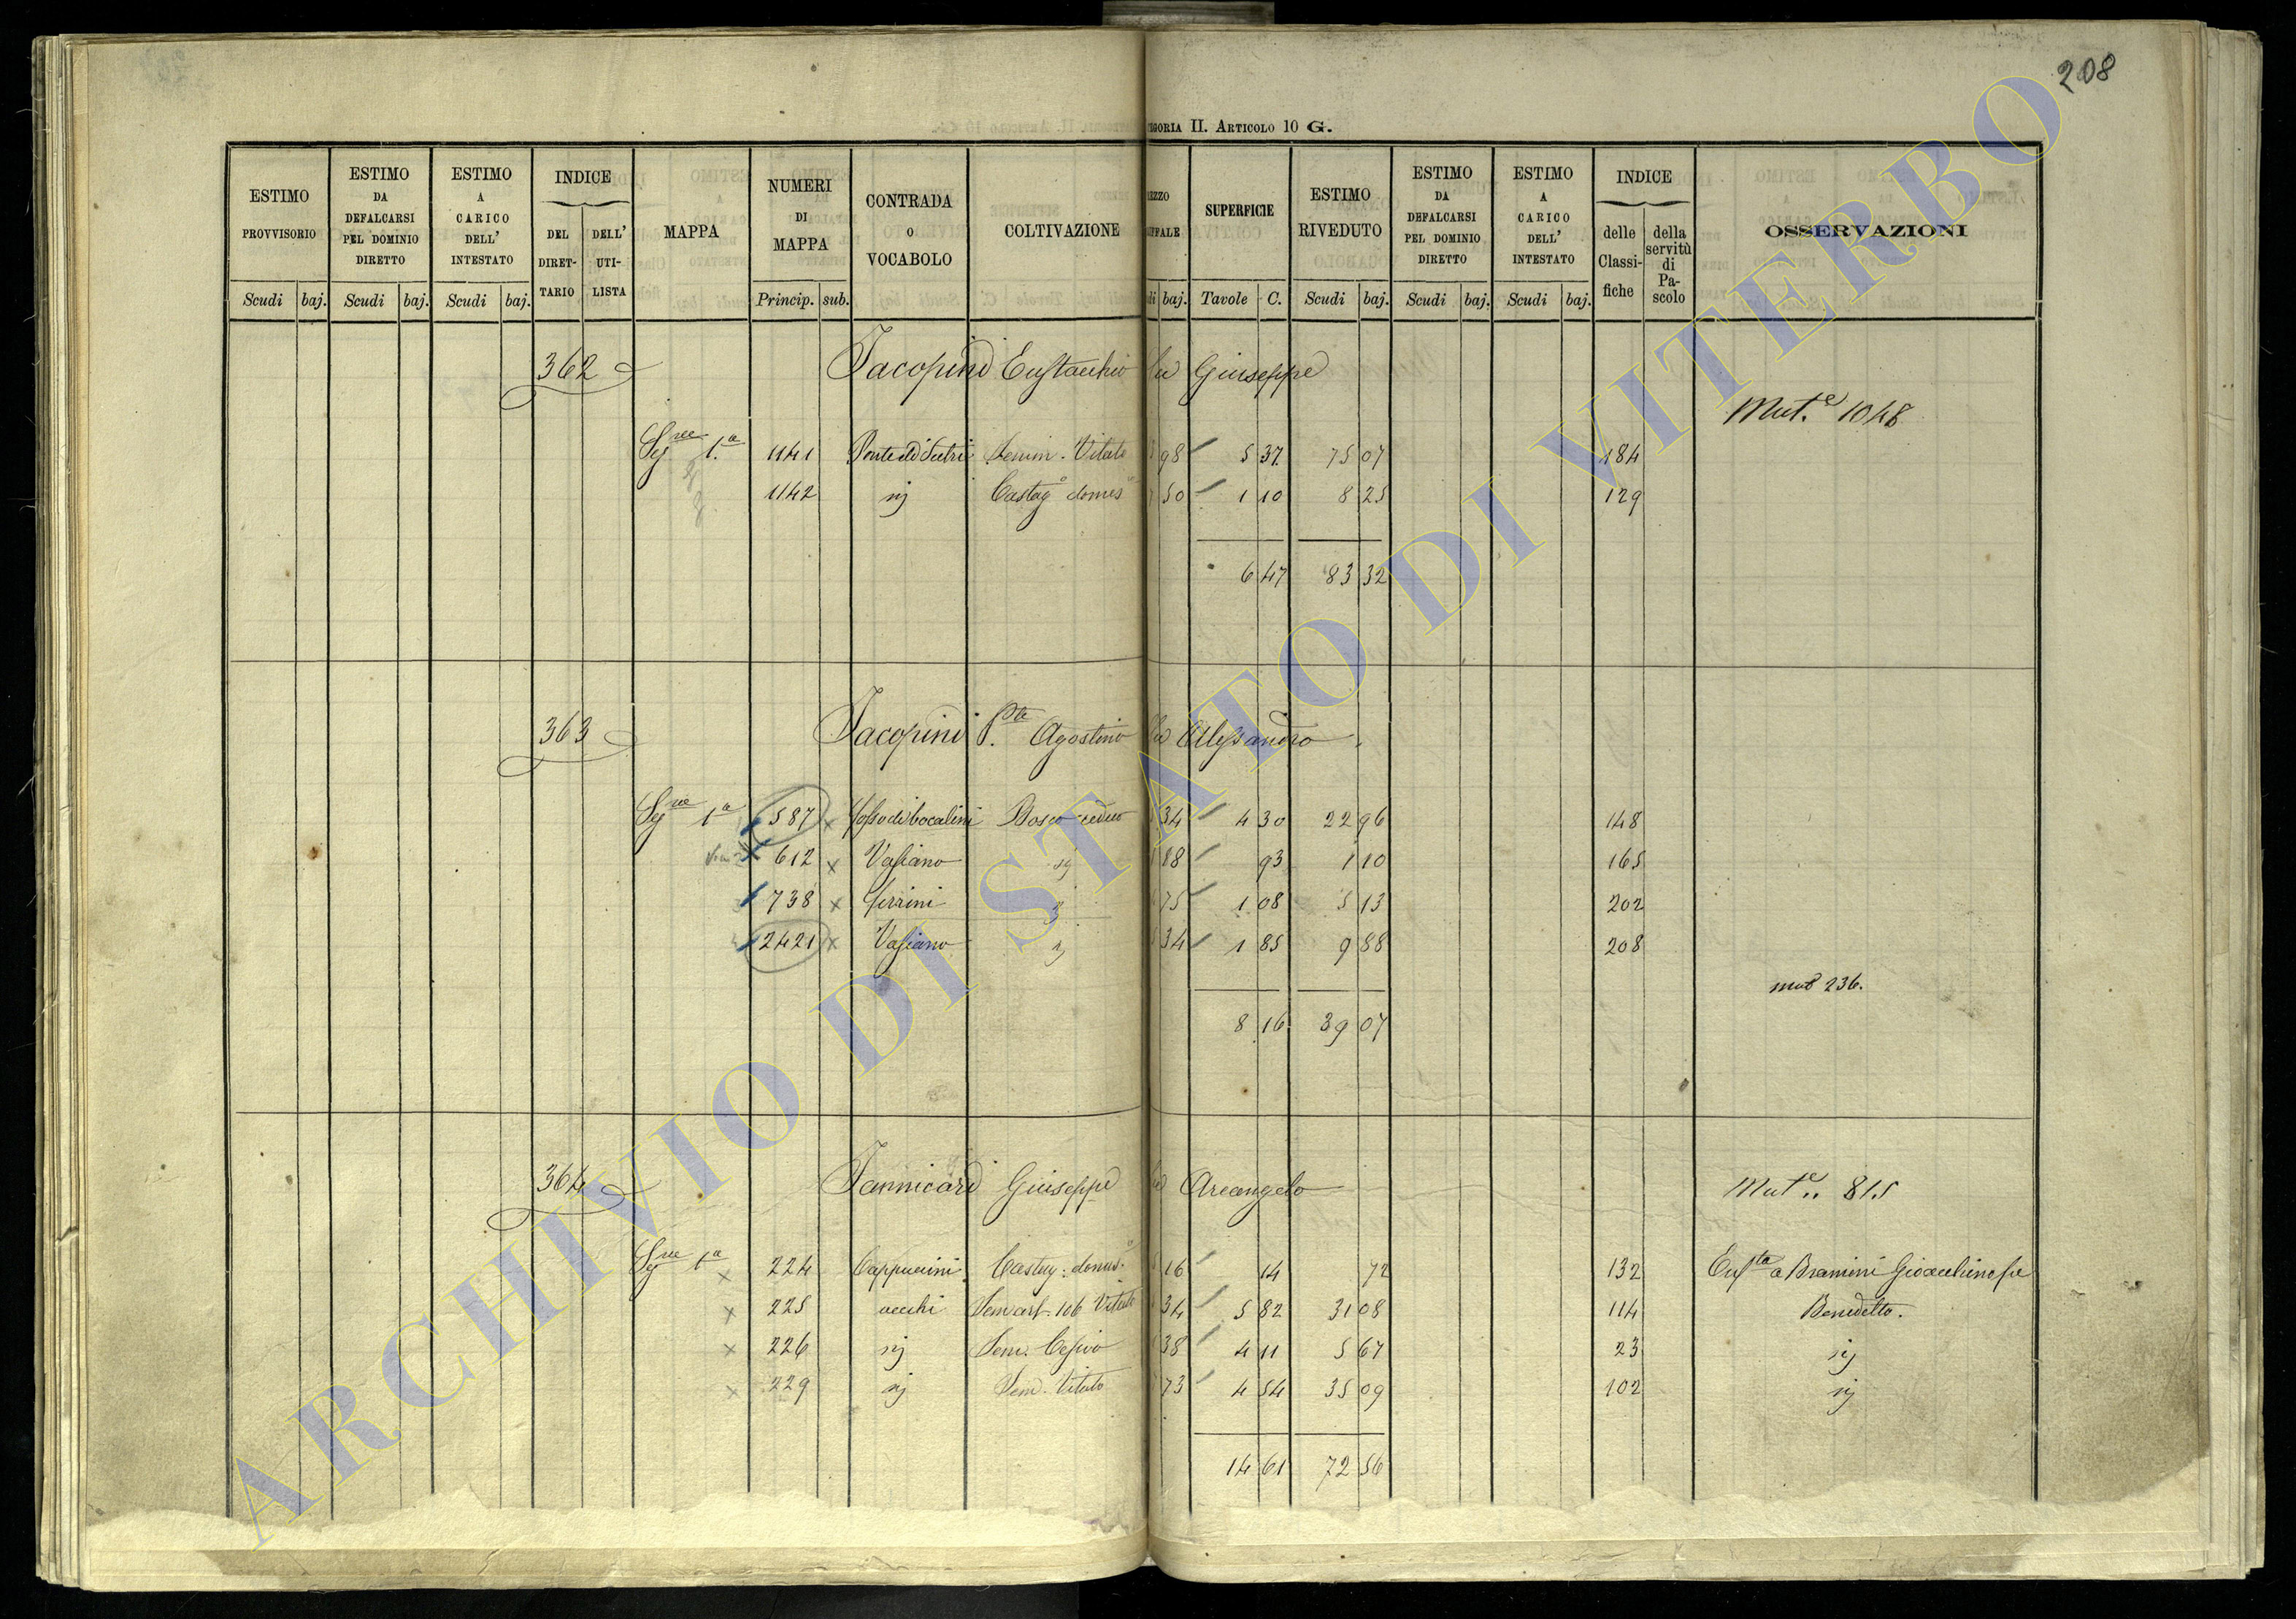 208
EGORIA II. ARTICOLO 10 G.
ESTIMO PROVVISORIO Scudi baj.
ESTIMO DA DEFALCARSI PEL DOMINIO DIRETTO Scudi baj.
ESTIMO A CARICO DELL' INTESTATO Scudi baj.
INDICE DEL DIRET-TARIO DELL' UTI-LISTA
MAPPA
NUMERI DI MAPPA Princip. sub.
CONTRADA O VOCABOLO
COLTIVAZIONE
EZZO UFFALE di baj.
SUPERFICIE Tavole C.
ESTIMO RIVEDUTO Scudi baj.
ESTIMO DA DEFALCARSI PEL DOMINIO DIRETTO Scudi baj.
ESTIMO A CARICO DELL' INTESTATO Scudi baj.
INDICE delle Classi-fiche della servitù di Pa-scolo
OSSERVAZIONI
362 Jacopini Eustacchio fu Giuseppe
Mut.e 1048
Sez.ne 1.a 1141 Ponte di Sutri Semin. Vitato 98 5 37 75 07 184
1142 sij Castag.o domes.o 50 1 10 8 25 129
6 47 83 32
363 Jacopini P.te Agostino fu Alessandro
Sez.ne 1a 587 x Fosso di bocalini Bosco ceduo 34 4 30 22 96 148
612 x Vasiano sij 18 93 1 10 165
738 x ferrini sij 75 1 08 5 13 202
2421 x Vasiano sij 34 1 85 9 88 208
mut 236.
8 16 39 07
364 Jannicari Giuseppe fu Arcangelo
Mut.e 815
Sez.ne 1a x 224 Cappuccini Castag. domes.o 16 14 72 132 Enf.ta a Bramini Gioacchino fu
x 225 vecchi Sem arb. 106 Vitato 34 5 82 31 08 114 Benedetto.
x 226 sij Sem. Cesivo 38 4 11 5 67 23 sij
x 229 sij Sem. Vitato 73 4 54 35 09 102 sij
14 61 72 56
ARCHIVIO DI STATO DI VITERBO